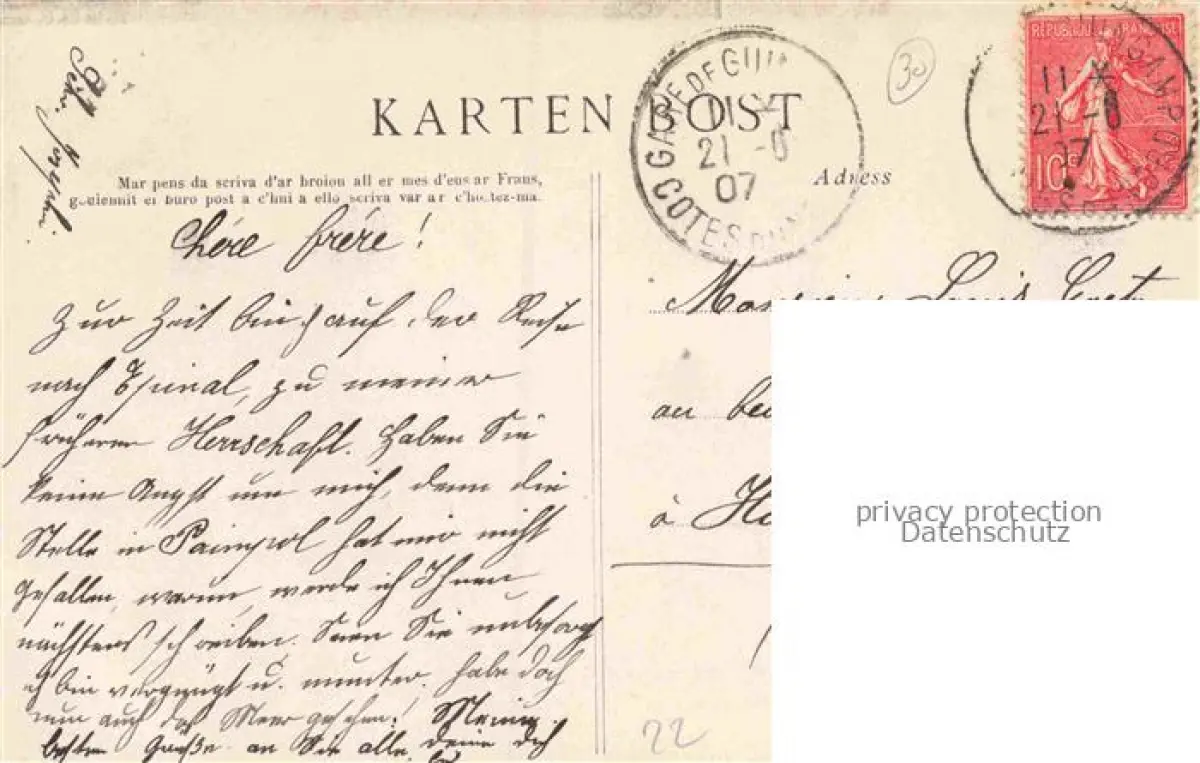 KARTEN BOST
Mar pens da scriva d'ar broiou all er mes d'eus ar Frans,
goulennit er buro post a c'hui a ello scriva var ar c'hostez-ma.
Adress
GARE DE GUIN
11
21 -8
07
COTES DU N
30
REPUBLIQUE FRANÇAISE
10c
GUINGAMP
11 *
21 -8
07
Chére frére!
Zur Zeit bin ich auf der Reise
nach Epinal, zu meiner
früheren Herrschaft. Haben Sie
keine Angst um mich, denn die
Stelle in Paimpol hat mir nicht
gefallen, warum, werde ich Ihnen
nächstens schreiben. Seien Sie unbesorgt
ich bin vergnügt u. munter. Habe doch
nun auch das Meer gesehen! Meine
besten Grüße an Sie alle, deine dich
Monsieur Louis
à
22
privacy protection
Datenschutz